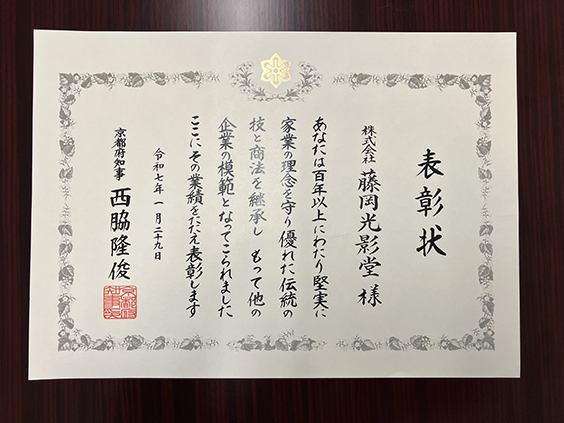 表彰状
株式会社 藤岡光影堂 様
あなたは百年以上にわたり堅実に
家業の理念を守り優れた伝統の
技と商法を継承し もって他の
企業の模範となってこられました
ここにその業績をたたえ表彰します
令和七年一月二十九日
京都府知事 西脇隆俊